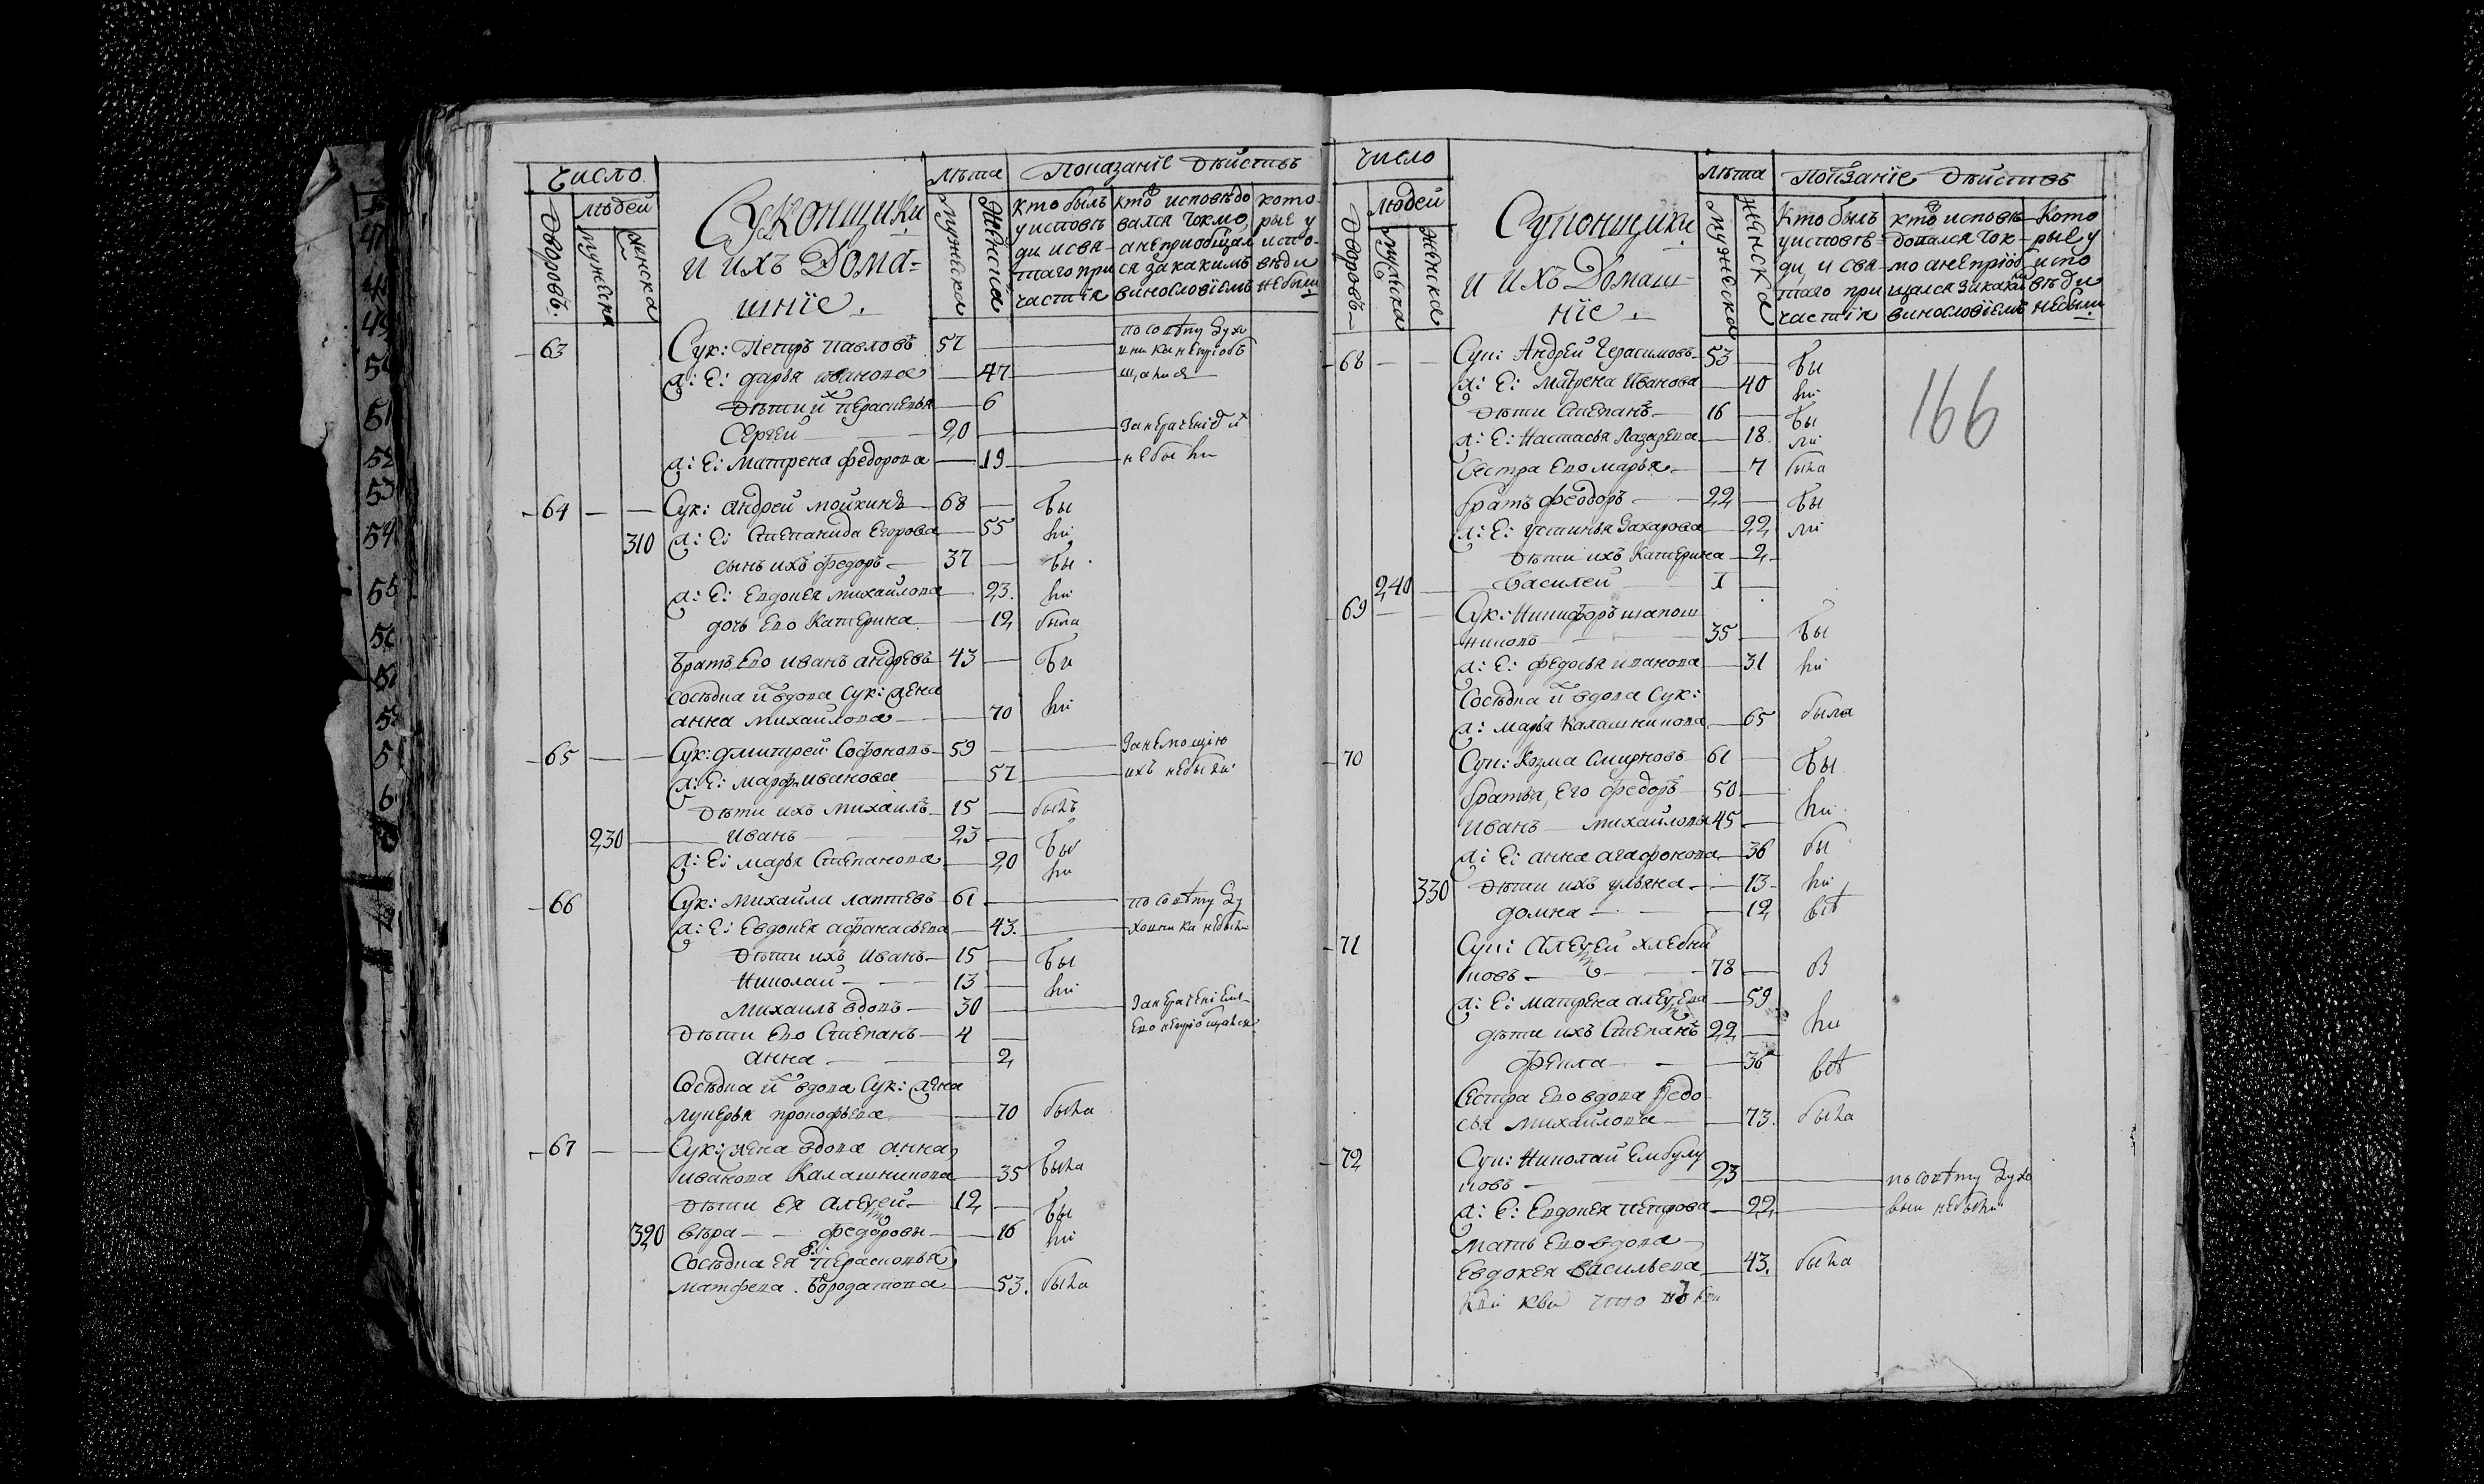 Число
Лѣта
Показанїе Дѣйствъ
Дворовъ.
Людей
мужеска
женска
Суконщики
и ихъ Дома=
шнїе.
Мужеска
Женска
кто былъ
у исповѣ
ди и свя-
таго при
частїя
кто исповѣдо
вался токмо
а не приобщал
ся за какимъ
винословїемъ
кото
рые у
испо-
вѣди
не были
63 Сук: Петръ Павловъ 57 по совѣту Духо
ж: Е: дарья иванова 47
Дѣти их Парасковья 6
Сергей 20
ж: Е: Матрена федорова 19 не были
64 Сук: андрей мойкинъ 68 бы
310 ж: Е: Степанида Егорова 55 ли
сынъ ихъ федоръ 37 бы
ж: Е: Евдокея михайлова 23. ли
дочь Ево Катерина 12 была
братъ Ево иванъ андреевъ 43 бы
сосѣдка их вдова Сук: жена
анна михайлова 70 ли
65 Сук: дмитрей Софоновъ 59 За немощїю
ж: Е: марфа иванова 57 ихъ не были
Дѣти ихъ михаилъ 15 былъ
230 Иванъ 23 бы
ж: Е: марья Степанова 20 ли
66 Сук: михайла лаптевъ 61 по совѣту Ду
ж: Е: Евдокея афанасьева 43. ховника не были
Дѣти ихъ Иванъ 15 бы
Николай 13 ли
Михаилъ вдовъ 30
Дѣти Ево Степанъ 4
анна 2
Сосѣдка их вдова Сук: жена
лукерья прокофьева 70 была
67 Сук: жена вдова анна
иванова Калашникова 35 была
Дѣти Ея алексей 12 бы
320 вѣра федоровы 16 ли
Сосѣдка Ея Парасковья
матфева Бородатова 53. была
Число
Лѣта
Показанїе Дѣйствъ
Дворовъ
людей
мужеска
женска
Суконщики
и ихъ Домаш-
нїе.
мужеска
женска
Кто былъ
у исповѣ-
ди и свя-
таго при
частїя
кто исповѣ
довался ток-
мо а не прїоб
щался за каким
винословїемъ
Кото
рые у
испо
вѣди
не были
166
68 Сук: Андрей Герасимовъ 53 бы
ж: Е: Матрена Иванова 40 ли
Дѣти Степанъ 16 бы
ж: Е: Настасья Лазарева 18. ли
Сестра Ево марья 7 была
братъ федоръ 22 бы
ж: Е: Устинья Захарова 22 ли
Дѣти ихъ Катерина 2
240 Василей 1
69 Сук: Никифоръ шапош
никовъ 35 бы
ж: Е: федосья иванова 31 ли
Сосѣдка их вдова Сук:
ж: марья Калашникова 65 была
70 Сук: Козма Смирновъ 61 бы
братья Его федоръ 50
Иванъ михайловы 45 ли
ж: Е: анна агафонова 36 бы
330 Дѣти ихъ ульяна 13 ли
домна 12
71 Сук: Алексей хлебни
ковъ 78
ж: Е: матрена алексева 59
дѣти ихъ Степанъ 22
фекла 36
Сестра Ево вдова Федо
сья михайлова 73. была
72 Сук: Николай Ембулу
ковъ 23 по совѣту Духо
ж: Е: Евдокея петрова 22 вни не были
мать Ево вдова
Евдокея васильева 43. была